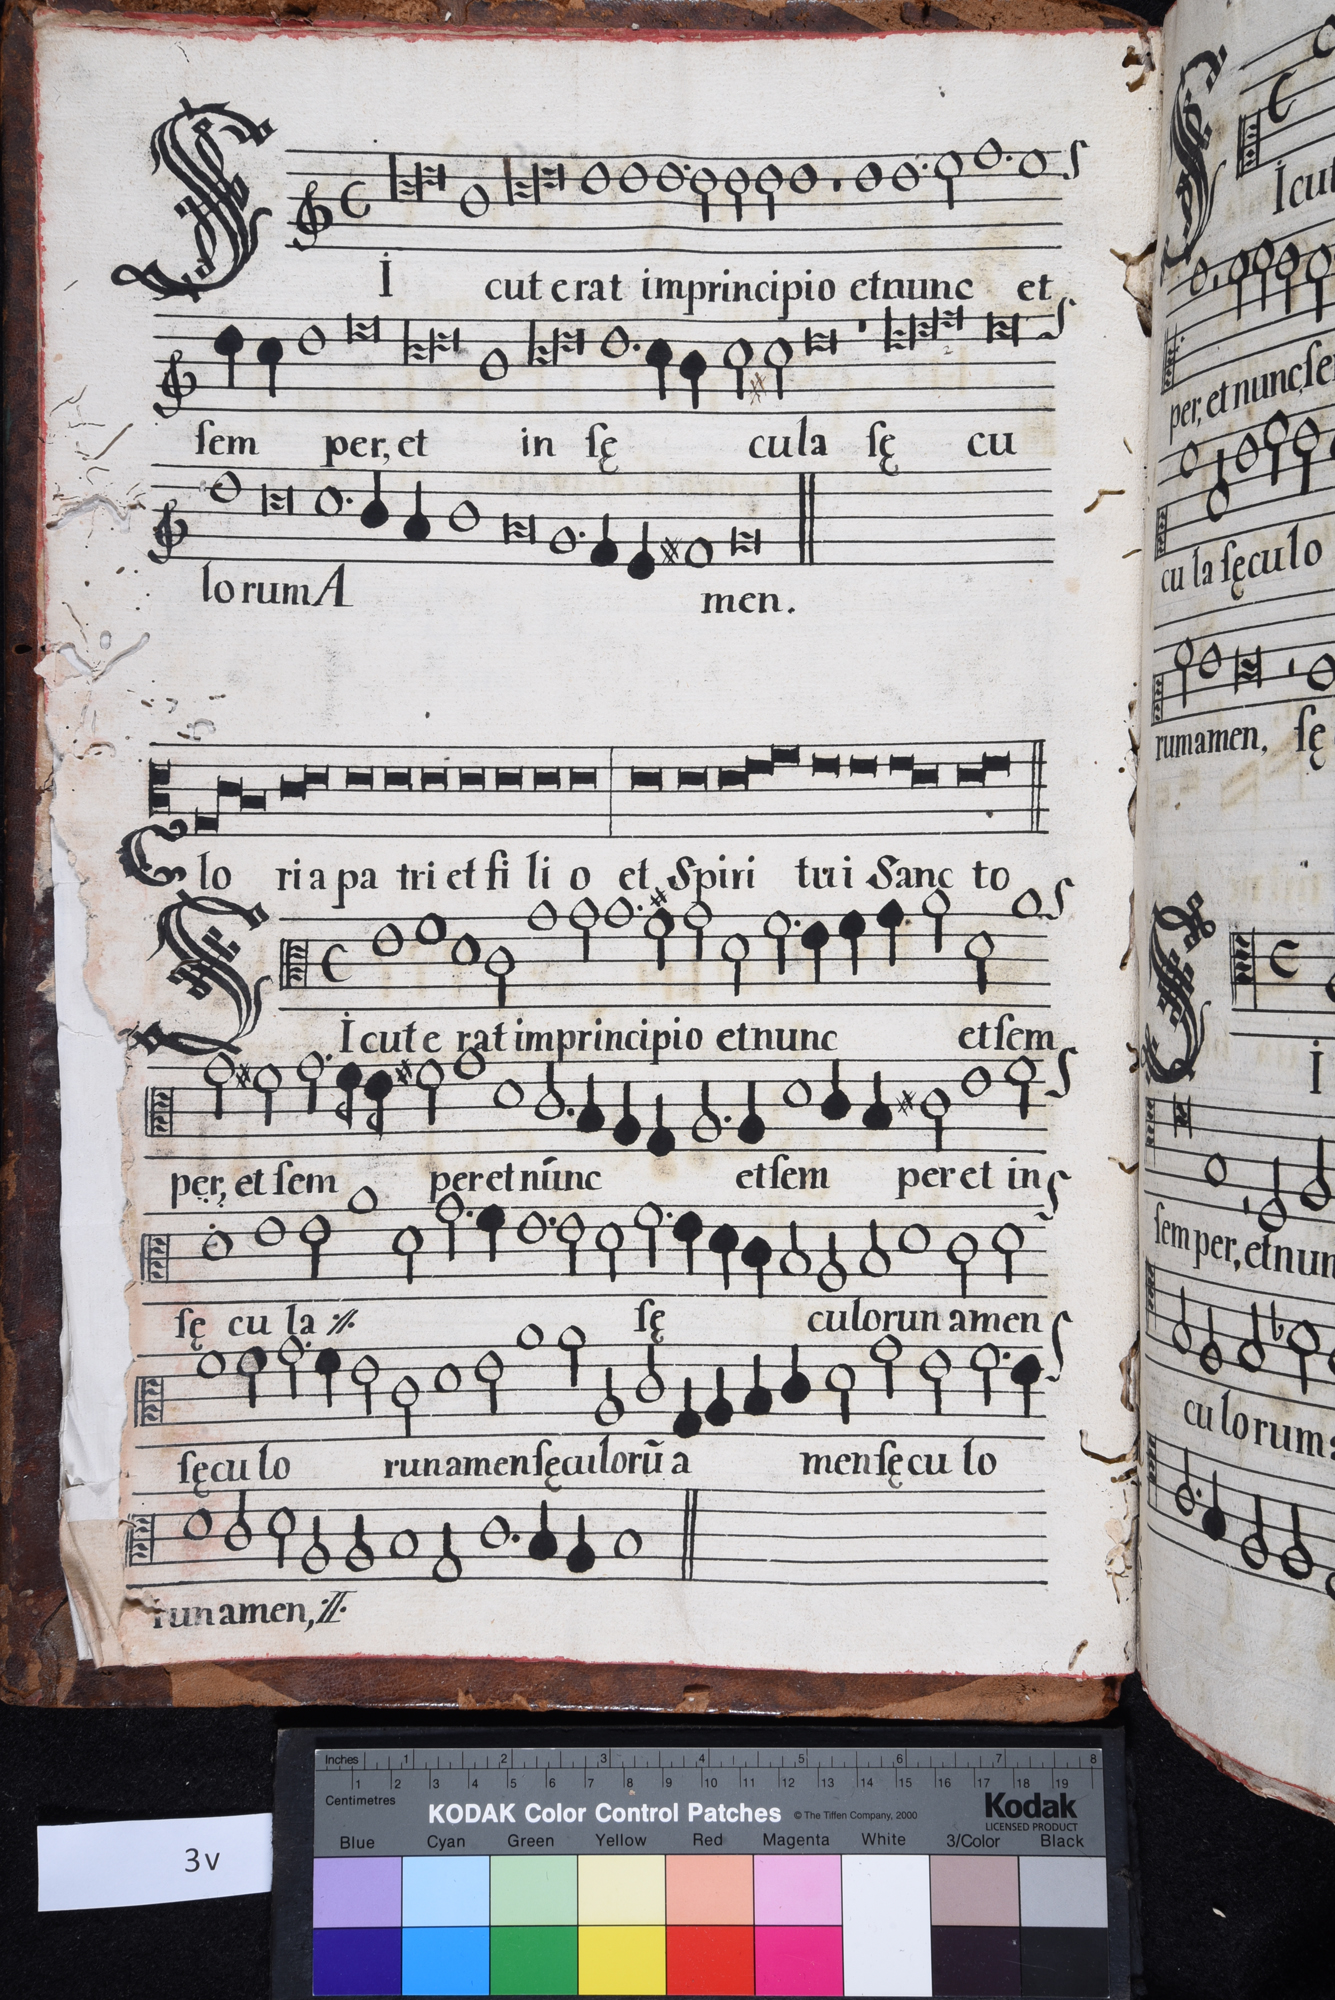 SI cut erat imprincipio et nunc et
sem per, et in sę cula sę cu
lo rum A men.
Glo ri a pa tri et fi li o et Spiri tui Sanc to
SIcut e rat imprincipio et nunc et sem
per, et sem per et nūnc et sem per et in
sę cu la :∥: sę culorun amen
sęcu lo run amen sęculorū a men sę cu lo
run amen, :∥:
Icut
per, et nunc, se
cu la sęcu lo
rum amen, sę
I
sem per, et nun
cu lo rum a
3v
Inches 1 2 3 4 5 6 7 8
Centimetres 1 2 3 4 5 6 7 8 9 10 11 12 13 14 15 16 17 18 19
KODAK Color Control Patches © The Tiffen Company, 2000 Kodak
LICENSED PRODUCT
Blue Cyan Green Yellow Red Magenta White 3/Color Black